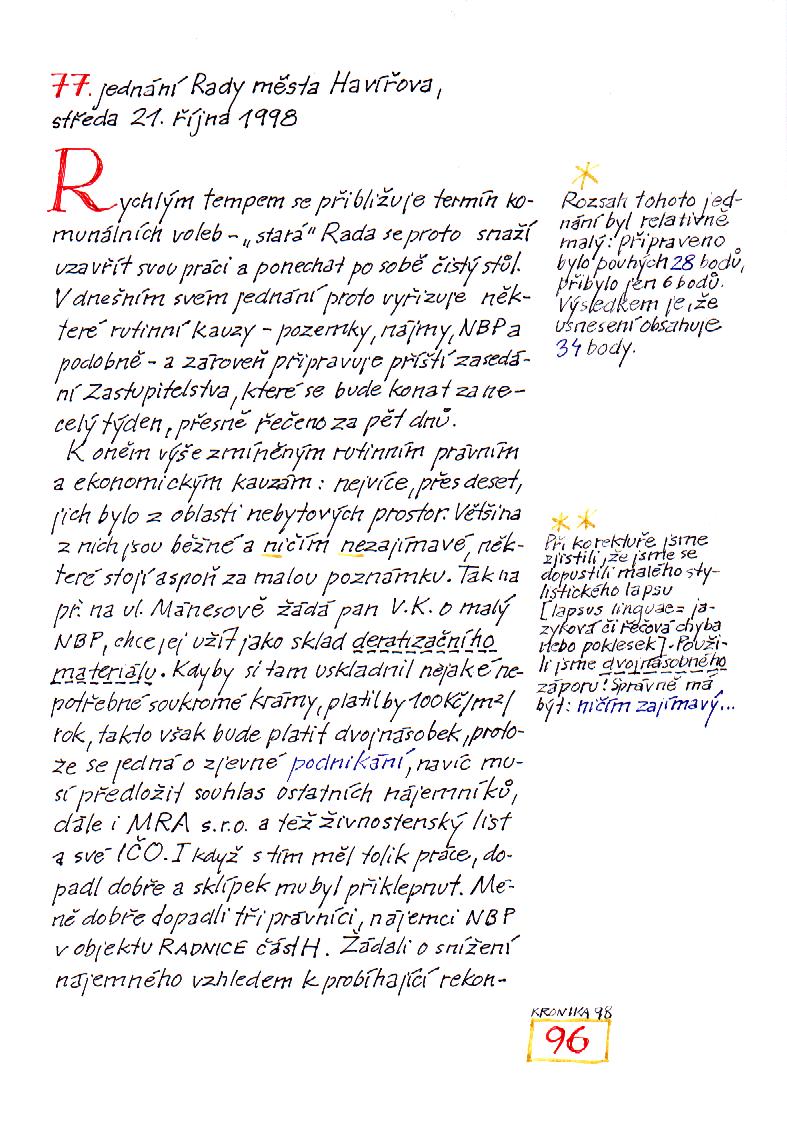 77. jednání Rady města Havířova,
středa 21. října 1998
Rychlým tempem se přibližuje termín ko-
munálních voleb - „stará" Rada se proto snaží
uzavřít svou práci a ponechat po sobě čistý stůl.
V dnešním svém jednání proto vyřizuje něk-
teré rutinní kauzy - pozemky, nájmy, NBP a
podobně - a zároveň připravuje příští zasedá-
ní Zastupitelstva, které se bude konat za ne-
celý týden, přesně řečeno za pět dnů.
K oněm výše zmíněným rutinním právním
a ekonomickým kauzám: nejvíce, přes deset,
jich bylo z oblasti nebytových prostor. Většina
z nich jsou běžné a ničím nezajímavé, něk-
teré stojí aspoň za malou poznámku. Tak na
př. na ul. Mánesově žádá pan V.K. o malý
NBP, chce jej užít jako sklad deratizačního
materiálu. Kdyby si tam uskladnil nějaké ne-
potřebné soukromé krámy, platil by 100 Kč/m²/
rok, takto však bude platit dvojnásobek, proto-
že se jedná o zjevné podnikání, navíc mu-
sí předložit souhlas ostatních nájemníků,
dále i MRA s.r.o. a též živnostenský list
a své IČO. I když s tím měl tolik práce, do-
padl dobře a sklípek mu byl přiklepnut. Mé-
ně dobře dopadli tři právníci, nájemci NBP
v objektu RADNICE část H. Žádali o snížení
nájemného vzhledem k probíhající rekon-
*
Rozsah tohoto jed-
nání byl relativně
malý: připraveno
bylo pouhých 28 bodů,
přibylo jen 6 bodů.
Výsledkem je, že
usnesení obsahuje
34 body.
* *
Při korektuře jsme
zjistili, že jsme se
dopustili malého sty-
listického lapsu
[lapsus linguae = ja-
zyková či řečová chyba
nebo poklesek]. Použi-
li jsme dvojnásobného
záporu! Správně má
být: ničím zajímavý...
KRONIKA 98
96